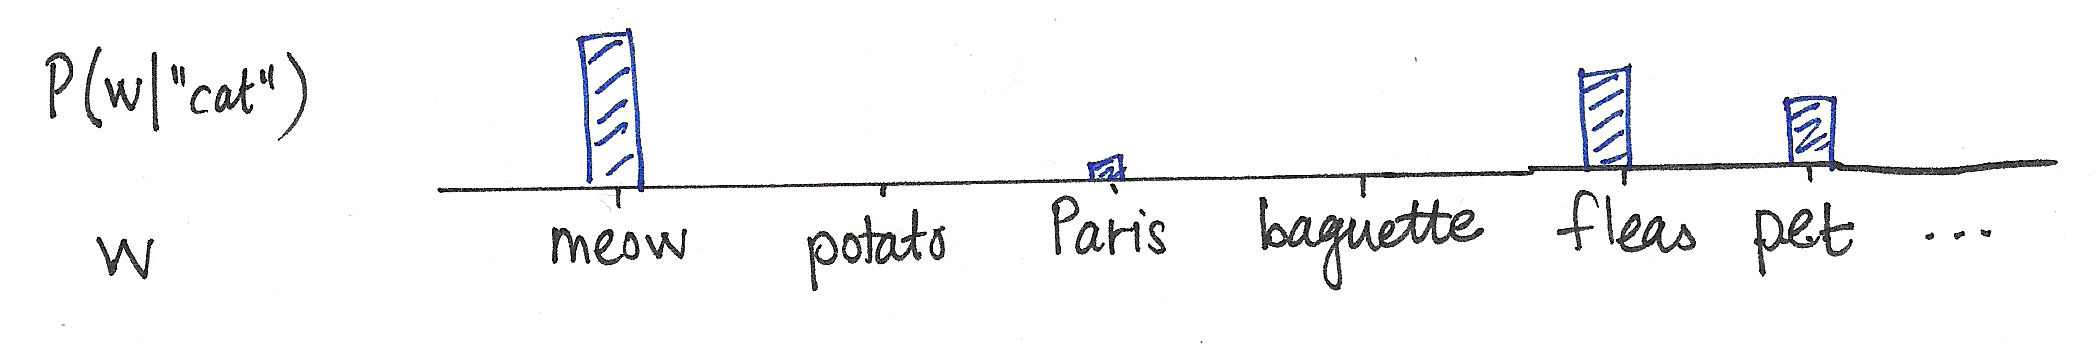 P(w|"cat")
w meow potato Paris baguette fleas pet ...